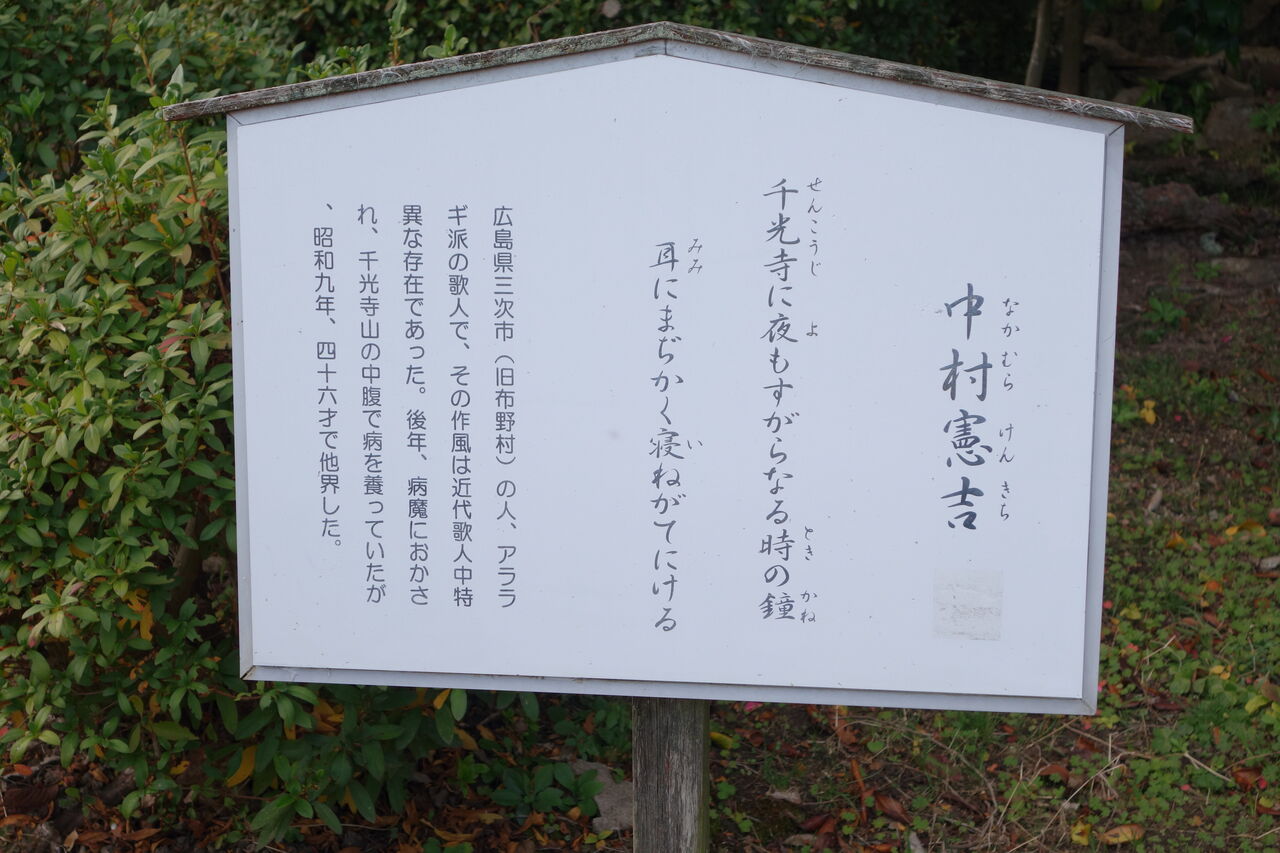 なかむら けんきち
中村憲吉
せんこうじ よ とき かね
千光寺に夜もすがらなる時の鐘
みみ い
耳にまぢかく寝ねがてにける
広島県三次市（旧布野村）の人、アララ
ギ派の歌人で、その作風は近代歌人中特
異な存在であった。後年、病魔におかさ
れ、千光寺山の中腹で病を養っていたが
、昭和九年、四十六才で他界した。